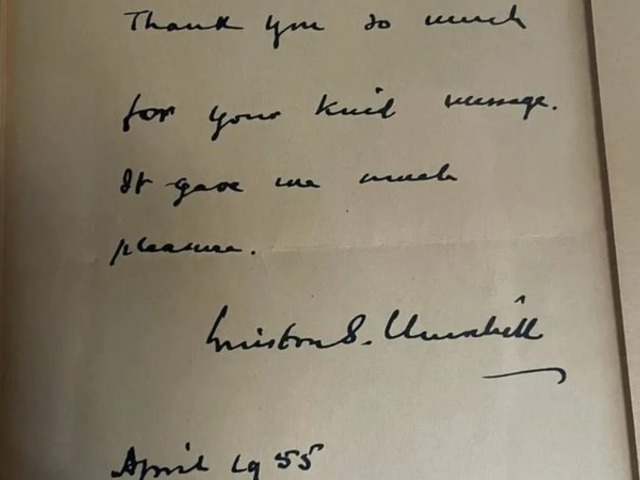 Thank you so much
for your kind message.
It gave me much
pleasure.
Winston S. Churchill
April 1955